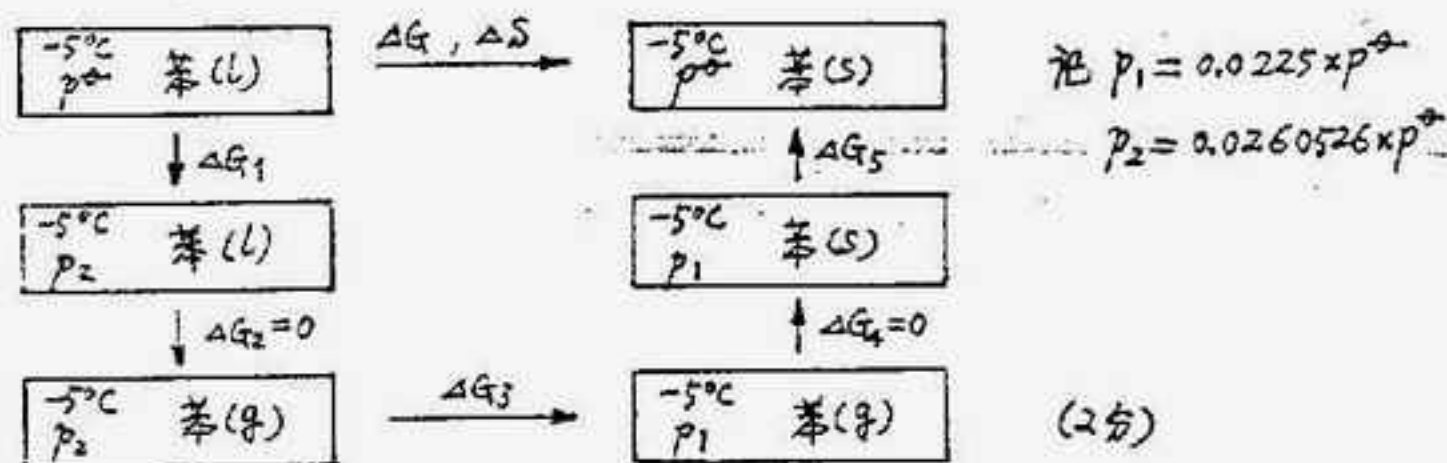 -5°C p⦵ 苯(l)
ΔG , ΔS
-5°C p⦵ 苯(s)
记 p₁ = 0.0225×p⦵
p₂ = 0.0260526×p⦵
ΔG₁
ΔG₅
-5°C p₂ 苯(l)
-5°C p₁ 苯(s)
ΔG₂=0
ΔG₄=0
-5°C p₂ 苯(g)
ΔG₃
-5°C p₁ 苯(g)
(2分)